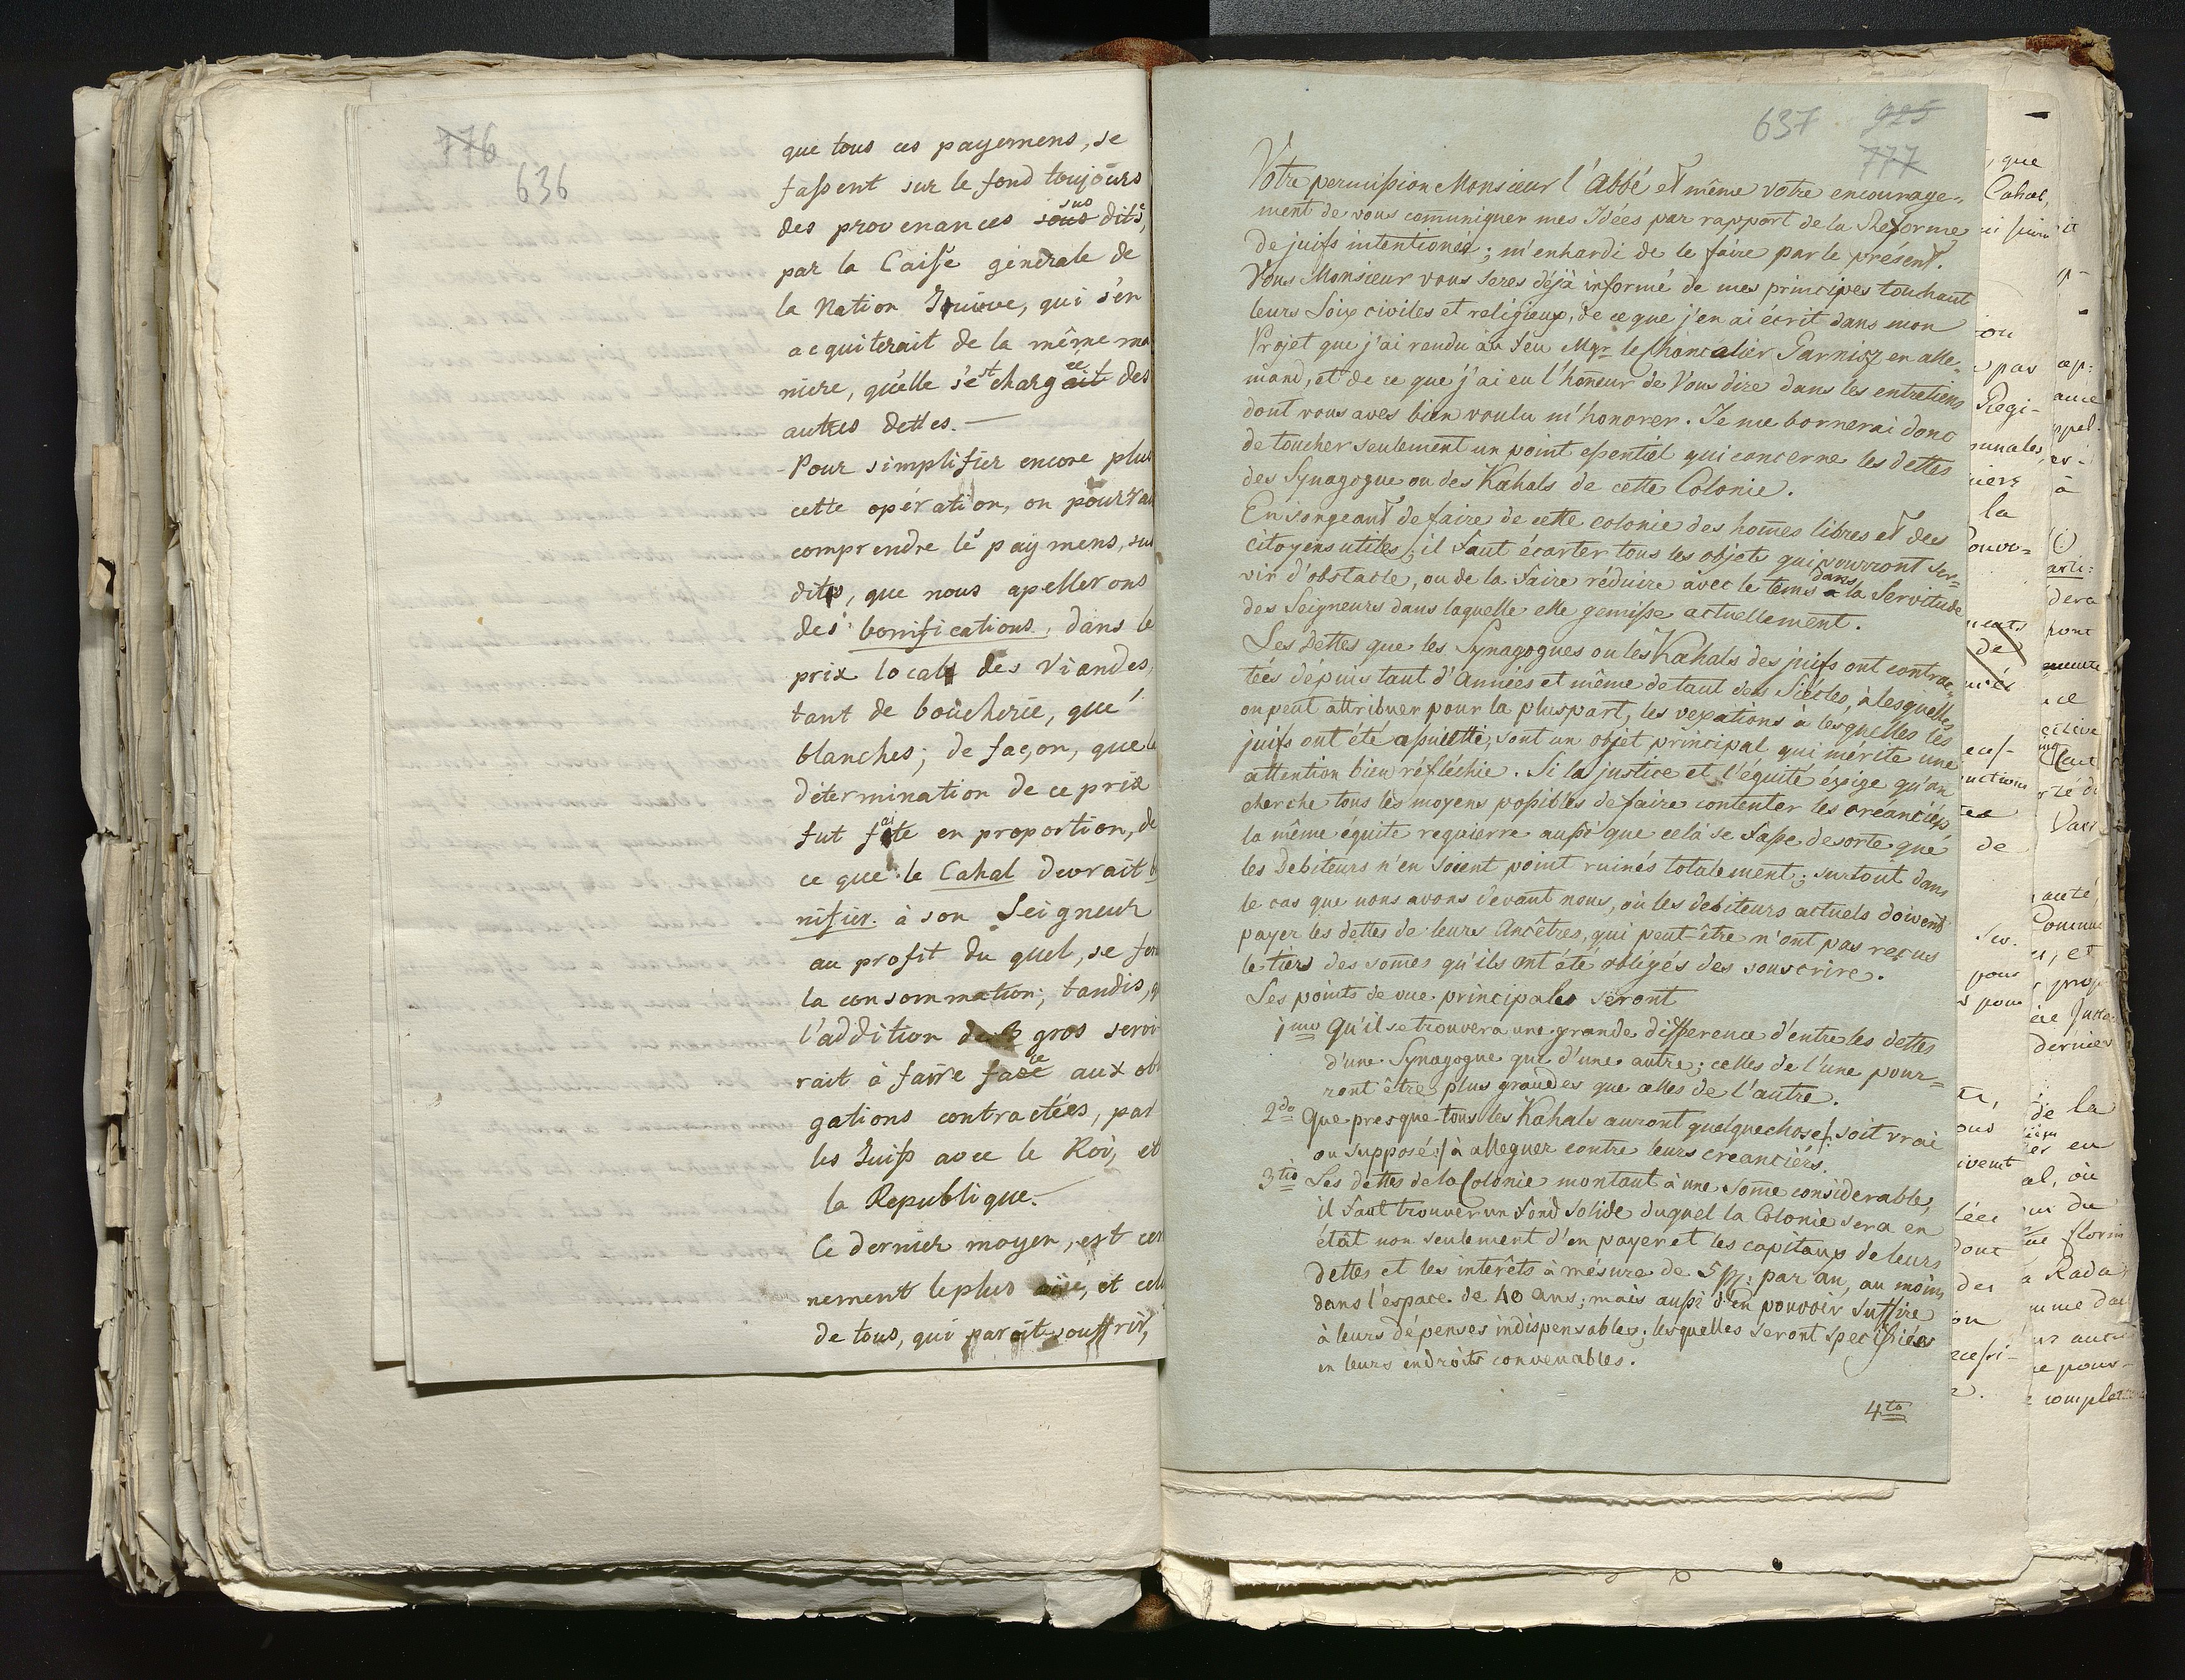 776
636
que tous ces payemens, se
fassent sur le fond toujours
des provenances sus dits,
par la Caisse génerale de
la Nation Juive, qui s'en
acquiterait de la même ma
niere, qu'elle s'est chargée des
autres dettes. —
Pour simplifier encore plus
cette opération, on pourrait
comprendre lé paymens, sus
dits, que nous apellerons
des bonifications, dans le
prix local des Viandes,
tant de boucherie, que
blanches; de façon, que la
détermination de ce prix
fut faite en proportion, de
ce que le Cahal devrait bo
nifier à son Seigneur
au profit du quel, se fera
la consommation; tandis, q
l'addition de 3 gros servi
rait à faire face aux obli
gations contractées, par
les Juifs avec le Roi, et
la Republique. —
Ce dernier moyen, est cer
nement le plus aisé, et celui
de tous, qui parait souffrir,
637 925
777
Votre permission Monsieur l'Abbé et même votre encourage=
ment de vous communiquer mes Idées par rapport de la Reforme
de juifs intentionée; m'enhardi de le faire par le présent.
Vous Monsieur vous seres déjà informé de mes principes touchant
leurs Loix civiles et réligieux, de ce que j'en ai écrit dans mon
Projet que j'ai rendu au feu Mgr le Chancalier Garnisz en alle=
mand, et de ce que j'ai eu l'honneur de Vous dire dans les entretiens
dont vous aves bien voulu m'honorer. Je me bornerai donc
de toucher seulement un point essentiel qui concerne les dettes
des Synagogue ou des Kahals de cette Colonie.
En songeant de faire de cette colonie des homes libres et des
citoyens utiles; il faut écarter tous les objets qui pourront ser=
vir d'obstacle, ou de la faire réduire avec le tems dans la Servitude
des Seigneurs dans laquelle elle gemisse actuellement.
Les Dettes que les Synagogues ou les Kahals des juifs ont contrac=
tées dépuis tant d'Années et même de tant des Siécles, à lesquelles
on peut attribuer pour la pluspart, les vexations à lesquelles les
juifs ont été assujetti, sont un objet principal qui mérite une
attention bien réfléchie. Si la justice et l'équité éxsige qu'on
cherche tous les moyens possibles de faire contenter les créanciérs,
la même équite requierre aussi que celà se fasse desorte que
les Debiteurs n'en soient point ruinés totalement; surtout dans
le cas que nous avons devant nous, où les debiteurs actuels doivent
payer les dettes de leurs Ancêtres, qui peut-être n'ont pas reçus
le tiers des somes qu'ils ont été obligés des souscrire.
Les points de vue principales seront
1mo Qu'il se trouvera une grande difference d'entre les dettes
d'une Synagogue que d'une autre; celles de l'une pour=
ront être plus grandes que celles de l'autre.
2do Que presque tous les Kahals auront quelquechose /: soit vrai
ou supposé :/ à alleguer contre leurs creanciérs.
3tio Les dettes de la Colonie montant à une some considerable,
il faut trouver un fond solide duquel la Colonie sera en
étât non seulement d'en payer et les capitaux de leurs
dettes et les intérêts à mésure de 5 pc: par an, au moins
dans l'espace de 40 ans; mais aussi d'en pouvoir suffire
à leurs dépenses indispensables; lesquelles seront specifiées
en leurs endroits convenables.
4to